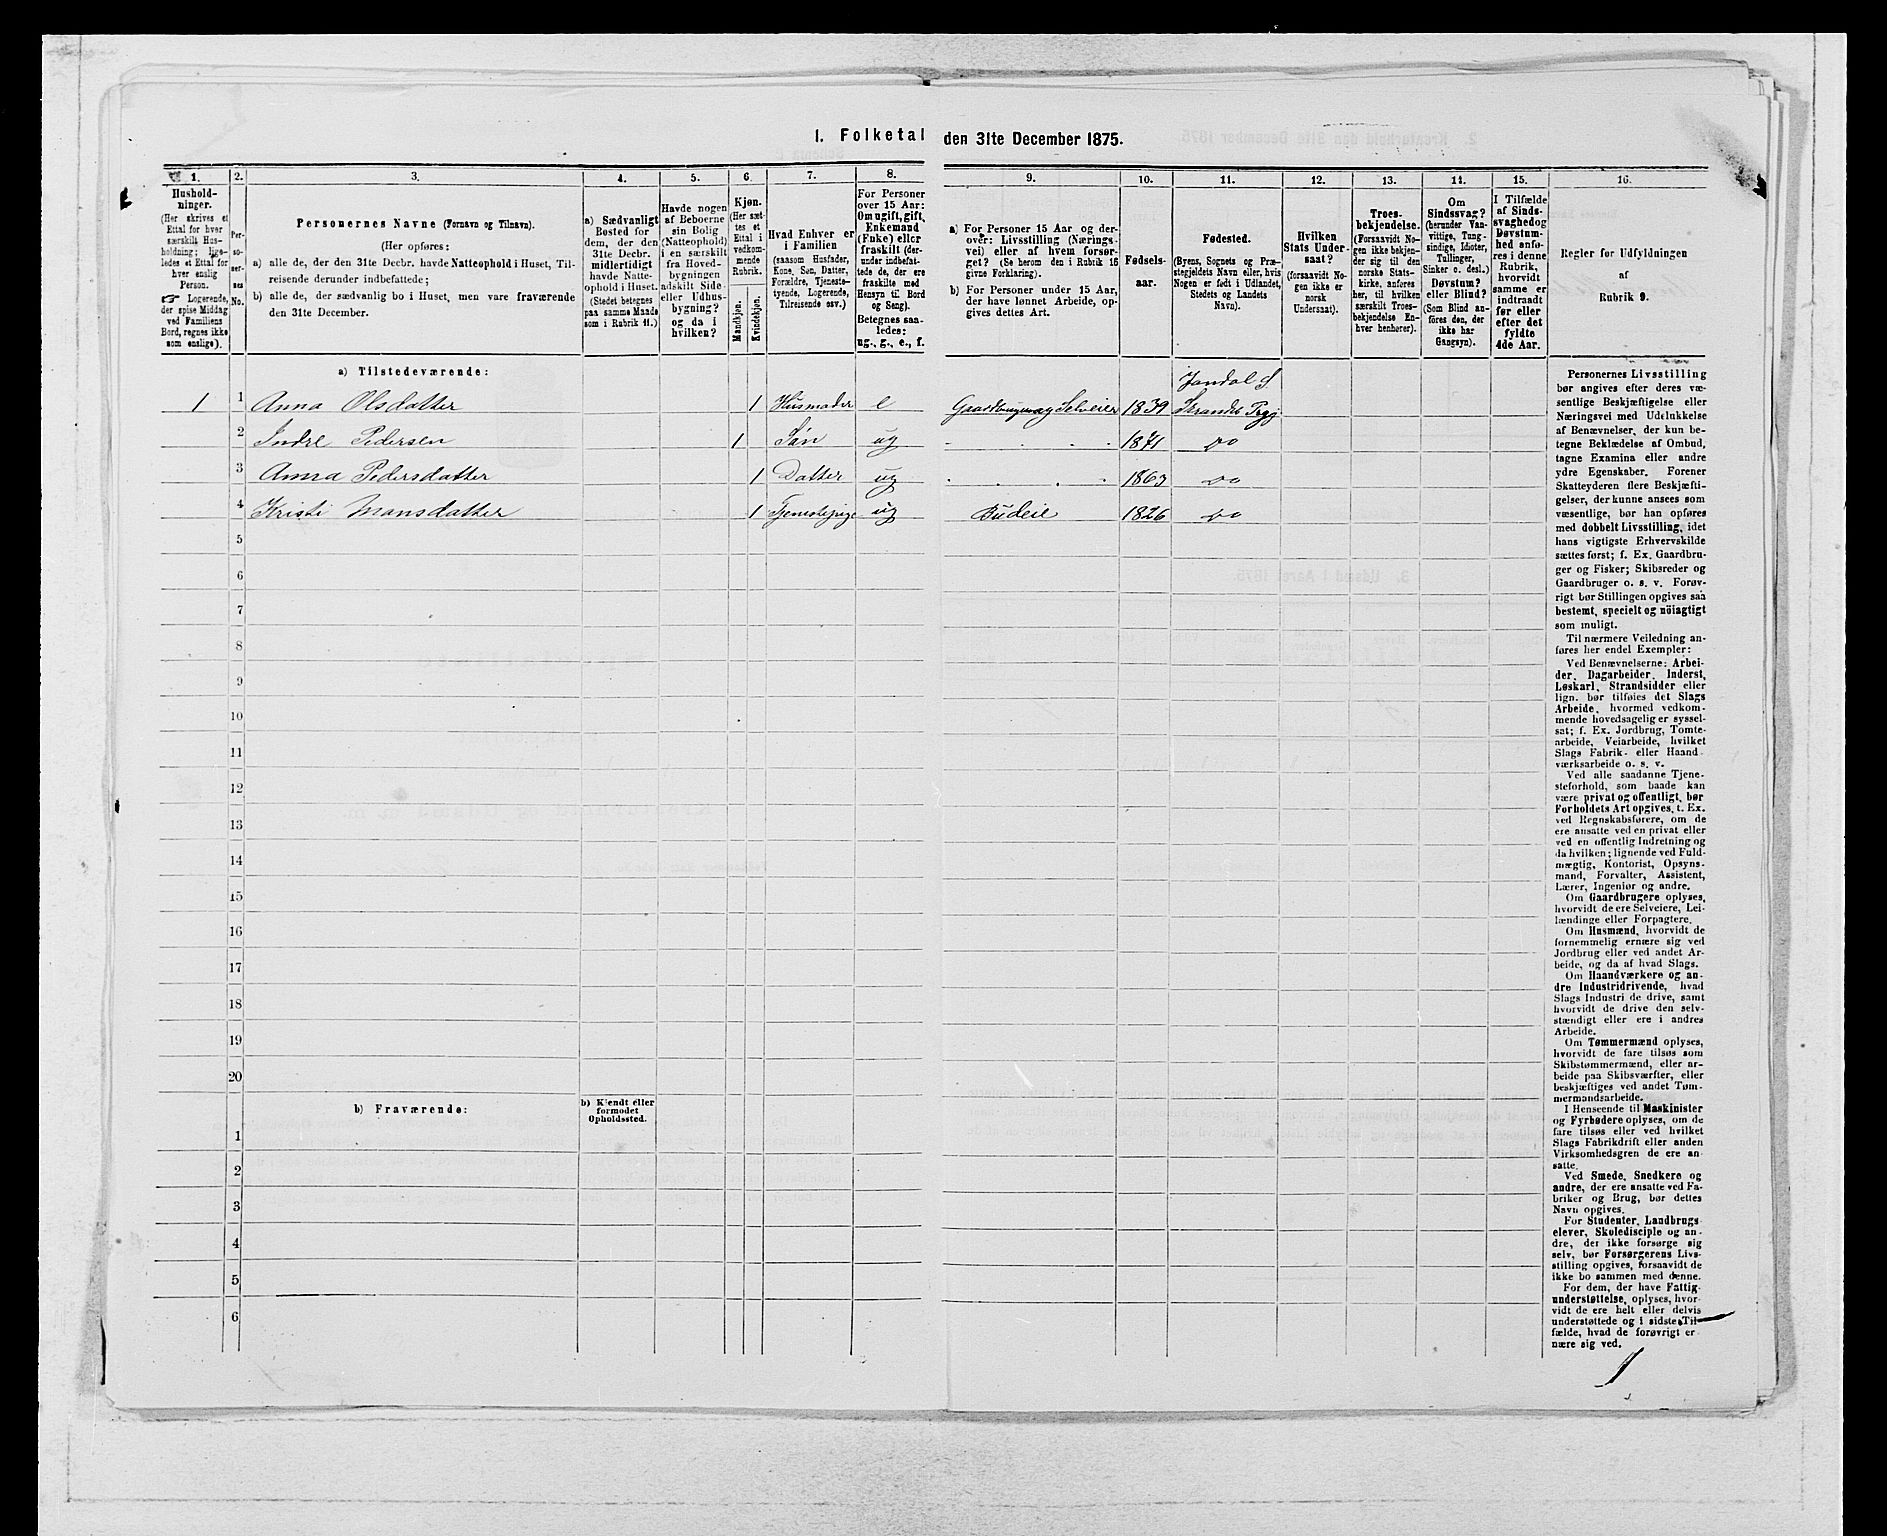 1. Folketal den 31te December 1875.
1.
2.
3.
4.
5.
6.
7.
8.
9.
10.
11.
12.
13.
14.
15.
16.
Hushold-
ninger.
(Her skrives et
Ettal for hver
særskilt Hus-
holdning; lige-
ledes et Ettal for
hver enslig
Person.
☞ Logerende,
der spise Middag
ved Familiens
Bord, regnes ikke
som enslige).
Per-
so-
ner-
nes
No.
Personernes Navne (Fornavn og Tilnavn).
(Her opføres:
a) alle de, der den 31te Decbr. havde Natteophold i Huset, Til-
reisende derunder indbefattede;
b) alle de, der sædvanlig bo i Huset, men vare fraværende
den 31te December.
a) Sædvanligt
Bosted for
dem, der den
31te Decbr.
midlertidigt
havde Natte-
ophold i Huset.
(Stedet betegnes
paa samme Maade
som i Rubrik 11.)
Havde nogen
af Beboerne
sin Bolig
(Natteophold)
i en særskilt
fra Hoved-
bygningen
adskilt Side-
eller Udhus-
bygning?
og da i
hvilken?
Kjøn.
(Her sæt-
tes et
Ettal i
vedkom-
mende
Rubrik.
Mandkjøn.
Kvindekjøn.
Hvad Enhver er
i Familien
(saasom Husfader,
Kone, Søn, Datter,
Forældre, Tjeneste-
tyende, Logerende,
Tilreisende osv.)
For Personer
over 15 Aar:
Om ugift, gift,
Enkemand
(Enke) eller
fraskilt (der-
under indbefat-
tede de, der ere
fraskilte med
Hensyn til Bord
og Seng).
Betegnes saa-
ledes:
ug., g., e., f.
a) For Personer 15 Aar og der-
over: Livsstilling (Nærings-
vei) eller af hvem forsør-
get? (Se herom den i Rubrik 16
givne Forklaring).
b) For Personer under 15 Aar,
der have lønnet Arbeide, op-
gives dettes Art.
Fødsels-
aar.
Fødested.
(Byens, Sognets og Præ-
stegjeldets Navn eller, hvis
Nogen er født i Udlandet,
Stedets og Landets
Navn).
Hvilken
Stats Under-
saat?
(forsaavidt No-
gen ikke er
norsk
Undersaat).
Troes-
bekjendelse.
(Forsaavidt No-
gen ikke bekjen-
der sig til den
norske Stats-
kirke, anføres
her, til hvilken
særskilt Troes-
bekjendelse En-
hver henhører).
Om
Sindssvag?
(herunder Van-
vittige, Tung-
sindige, Idioter,
Tullinger,
Sinker o. desl.)
Døvstum?
eller Blind?
(Som Blind an-
føres den, der
ikke har
Gangsyn).
I Tilfælde
af Sinds-
svaghed og
Døvstum-
hed anfø-
res i denne
Rubrik,
hvorvidt
samme er
indtraadt
før eller
efter det
fyldte
4de Aar.
Regler for Udfyldningen
af
Rubrik 9.
a) Tilstedeværende:
Jondal S
1 1 Anna Olsdatter 1 Husmoder e Gaardbruger og Selveier 1839 Strandeb Prgj
2 Indre Pedersen 1 Søn ug 1871 do
3 Anna Pedersdatter 1 Datter ug 1863 do
4 Kristi Monsdatter 1 Tjenestepige ug Budeie 1826 do
5
6
7
8
9
10
11
12
13
14
15
16
17
18
19
20
b) Fraværende:
b) Kjendt eller
formodet
Opholdssted.
1
2
3
4
5
6
Personernes Livsstilling
bør angives efter deres væ-
sentlige Beskjæftigelse eller
Næringsvei med Udelukkelse
af Benævnelser, der kun be-
tegne Beklædelse af Ombud,
tagne Examina eller andre
ydre Egenskaber. Forener
Skatteyderen flere Beskjæfti-
gelser, der kunne ansees som
væsentlige, bør han opføres
med dobbelt Livsstilling, idet
hans vigtigste Erhvervskilde
sættes først; f. Ex. Gaardbru-
ger og Fisker; Skibsreder og
Gaardbruger o. s. v. Forøv-
rigt bør Stillingen opgives saa
bestemt, specielt og nöiagtigt
som muligt.
Til nærmere Veiledning an-
føres her endel Exempler:
Ved Benævnelserne: Arbei-
der, Dagarbeider, Inderst,
Løskarl, Strandsidder eller
lign. bør tilføies det Slags
Arbeide, hvormed vedkom-
mende hovedsagelig er syssel-
sat; f. Ex. Jordbrug, Tomte-
arbeide, Veiarbeide, hvilket
Slags Fabrik- eller Haand-
værksarbeide o. s. v.
Ved alle saadanne Tjene-
steforhold, som baade kan
være privat og offentligt, bør
Forholdets Art opgives, t. Ex.
ved Regnskabsførere, om de
ere ansatte ved en privat eller
ved en offentlig Indretning og
da hvilken; lignende ved Fuld-
mægtig, Kontorist, Opsyns-
mand, Forvalter, Assistent,
Lærer, Ingeniør og andre.
Om Gaardbrugere oplyses,
hvorvidt de ere Selveiere, Lei-
lændinge eller Forpagtere.
Om Husmænd, hvorvidt de
fornemmelig ernære sig ved
Jordbrug eller ved andet Ar-
beide, og da af hvad Slags.
Om Haandværkere og an-
dre Industridrivende, hvad
Slags Industri de drive, samt
hvorvidt de drive den selv-
stændigt eller ere i andres
Arbeide.
Om Tømmermænd oplyses,
hvorvidt de fare tilsøs som
Skibstømmermænd, eller ar-
beide paa Skibsværfter, eller
beskjæftiges ved andet Tøm-
mermandsarbeide.
I Henseende til Maskinister
og Fyrbødere oplyses, om de
fare tilsøs eller ved hvilket
Slags Fabrikdrift eller anden
Virksomhedsgren de ere an-
satte.
Ved Smede, Snedkere og
andre, der ere ansatte ved Fa-
briker og Brug, bør dettes
Navn opgives.
For Studenter, Landbrugs-
elever, Skoledisciple og an-
dre, der ikke forsørge sig
selv, bør Forsørgerens Livs-
stilling opgives, forsaavidt de
ikke bo sammen med denne.
For dem, der have Fattig-
understøttelse, oplyses, hvor-
vidt de ere helt eller delvis
understøttede og i sidste Til-
fælde, hvad de forøvrigt er-
nære sig ved.